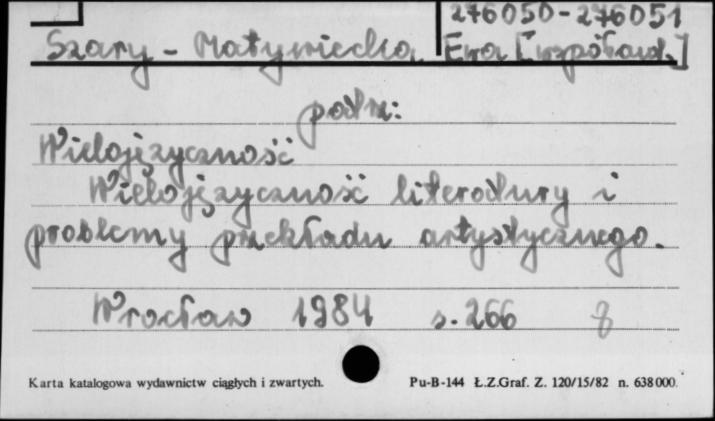 276050-276051
Szary-Matywiecka Ewa [współaut.]
patrz:
Wielojęzyczność
Wielojęzyczność literatury i
problemy przekładu artystycznego.
Wrocław 1984 s. 266 8
Karta katalogowa wydawnictw ciągłych i zwartych. Pu-B-144 Ł.Z.Graf. Z. 120/15/82 n. 638000.